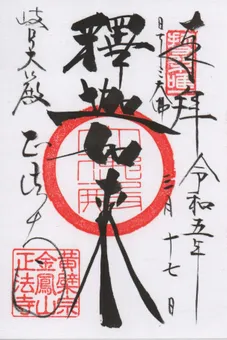 奉拝
日本三大佛
令和五年
三月十七日
釋迦如来
岐阜大
正法寺
黄檗宗
金鳳山
正法寺